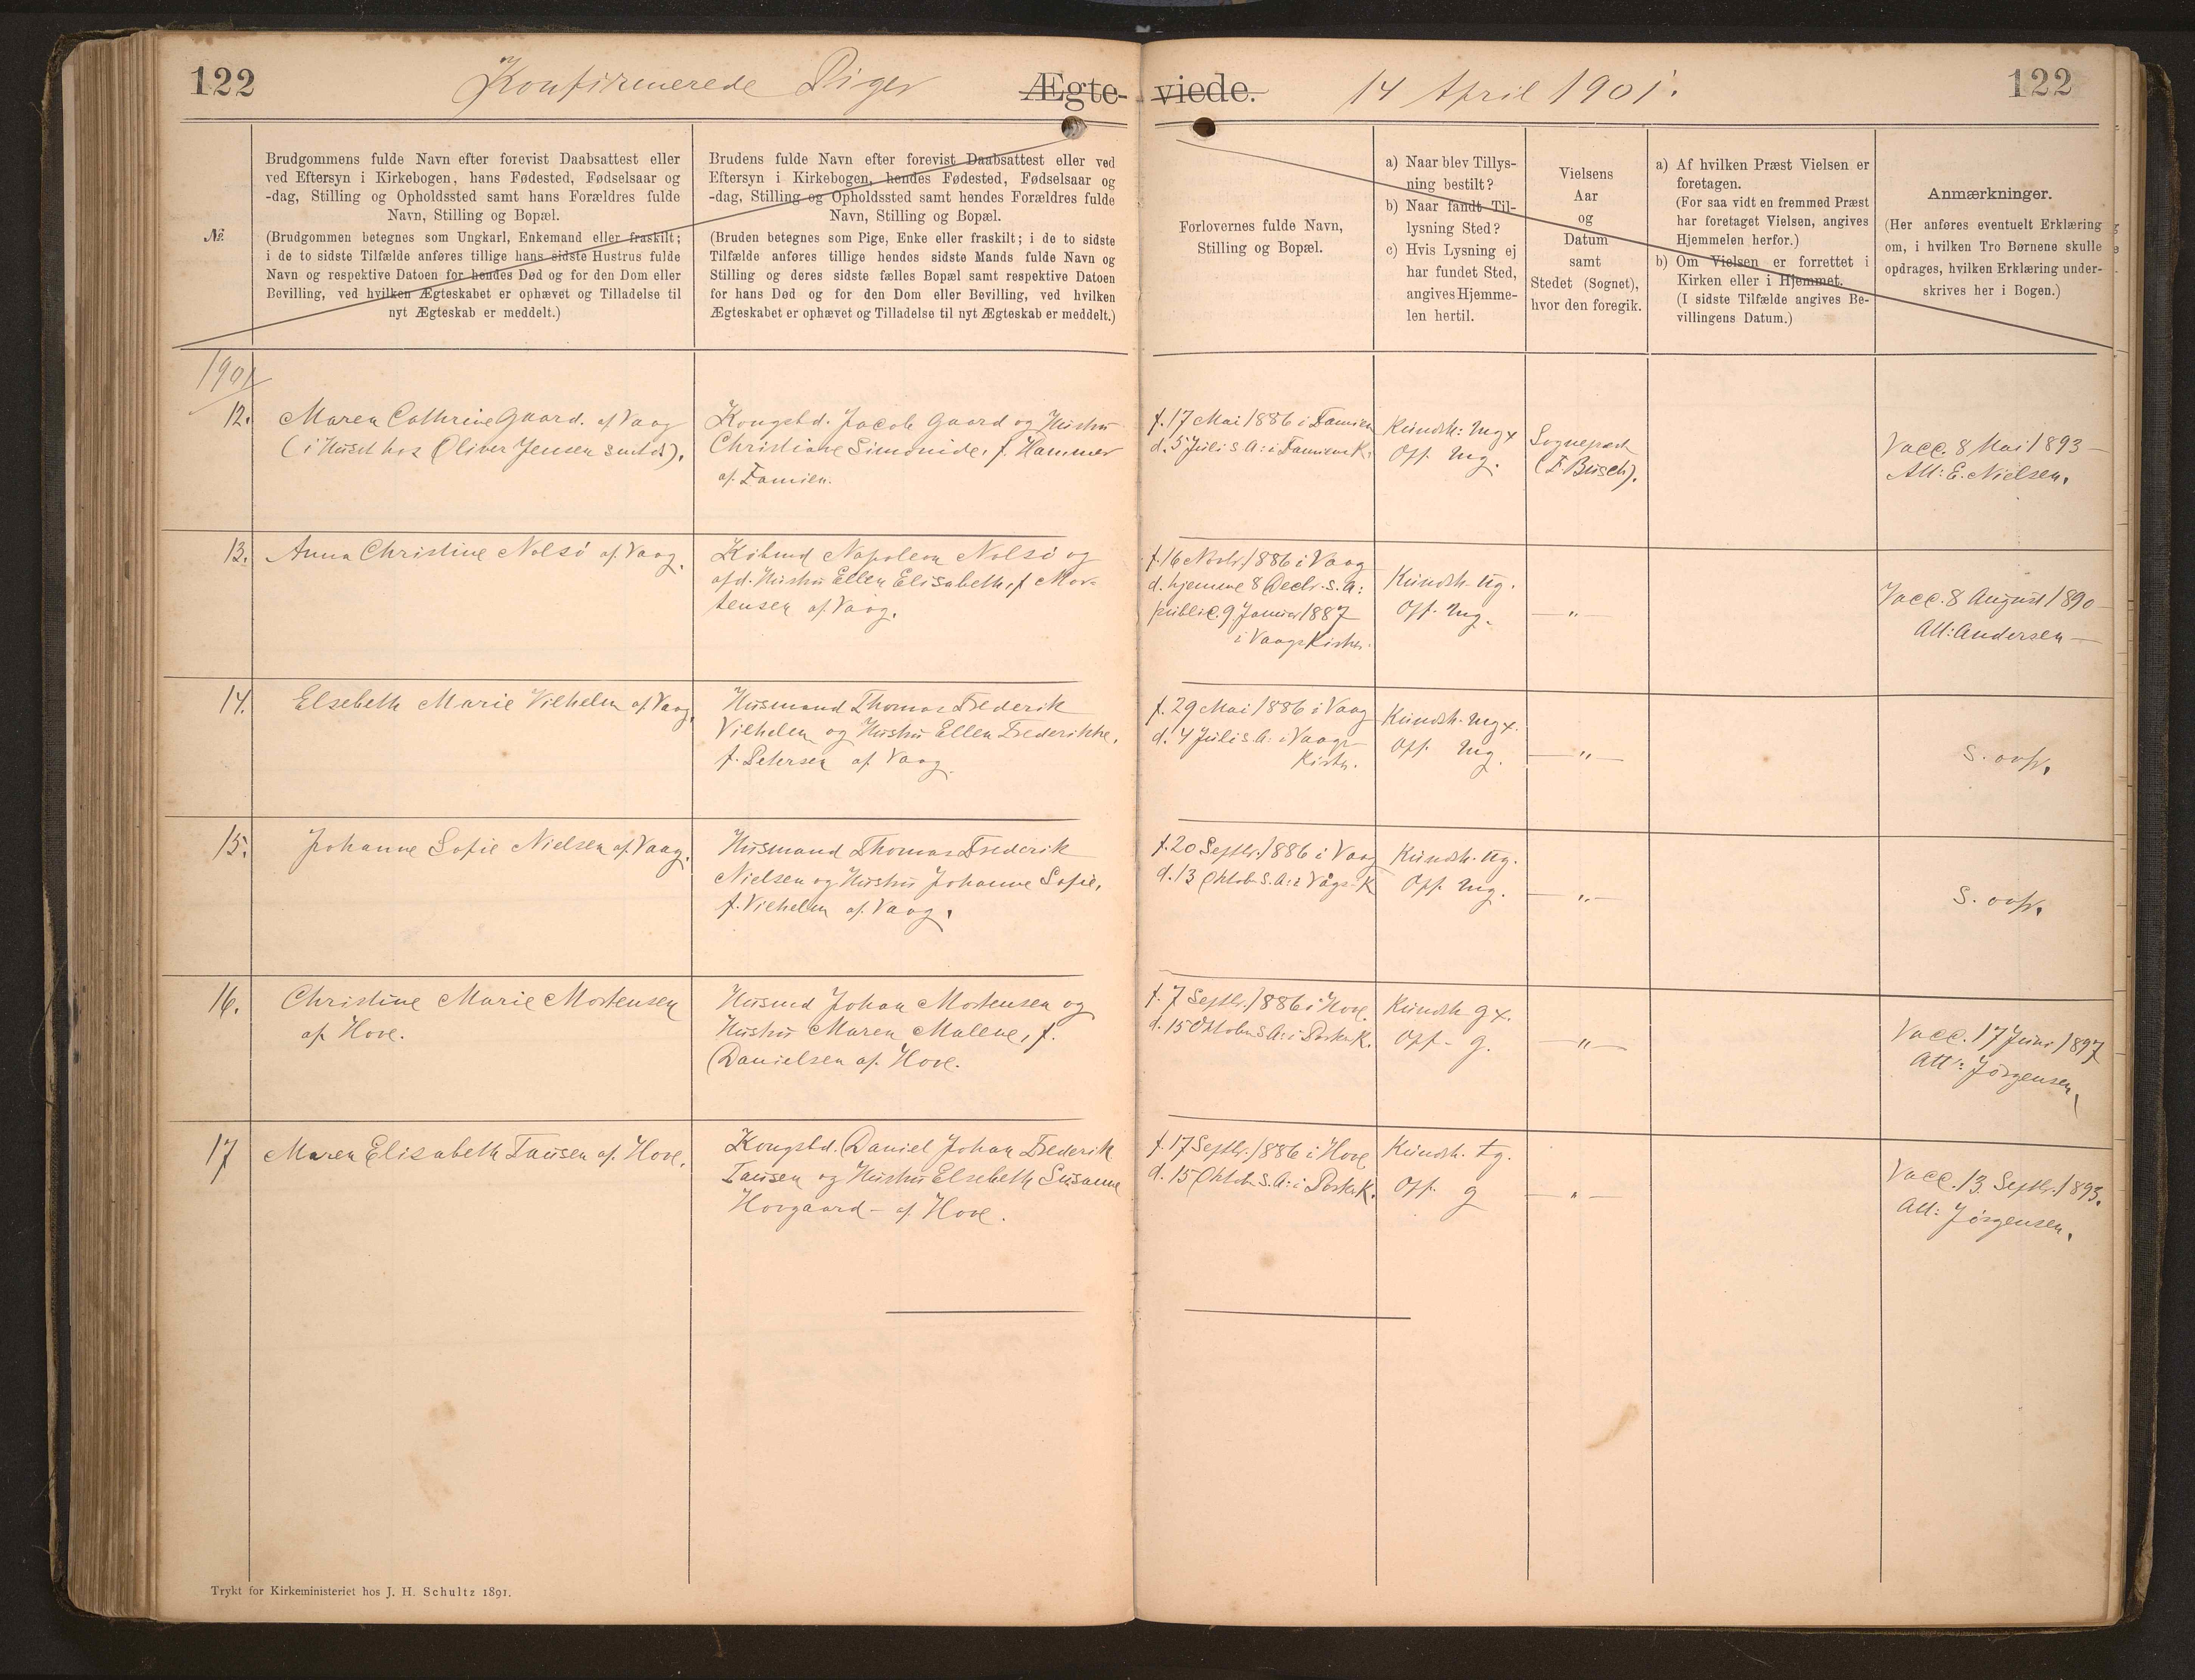 122
Konfirmerede Piger
Ægte-
viede.
14 April 1901.
122
№
Brudgommens fulde Navn efter forevist Daabsattest eller
ved Eftersyn i Kirkebogen, hans Fødested, Fødselsaar og
-dag, Stilling og Opholdssted samt hans Forældres fulde
Navn, Stilling og Bopæl.
(Brudgommen betegnes som Ungkarl, Enkemand eller fraskilt;
i de to sidste Tilfælde anføres tillige hans sidste Hustrus fulde
Navn og respektive Datoen for hendes Død og for den Dom eller
Bevilling, ved hvilken Ægteskabet er ophævet og Tilladelse til
nyt Ægteskab er meddelt.)
Brudens fulde Navn efter forevist Daabsattest eller ved
Eftersyn i Kirkebogen, hendes Fødested, Fødselsaar og
-dag, Stilling og Opholdssted samt hendes Forældres fulde
Navn, Stilling og Bopæl.
(Bruden betegnes som Pige, Enke eller fraskilt; i de to sidste
Tilfælde anføres tillige hendes sidste Mands fulde Navn og
Stilling og deres sidste fælles Bopæl samt respektive Datoen
for hans Død og for den Dom eller Bevilling, ved hvilken
Ægteskabet er ophævet og Tilladelse til nyt Ægteskab er meddelt.)
Forlovernes fulde Navn,
Stilling og Bopæl.
a) Naar blev Tillys-
ning bestilt?
b) Naar fandt Til-
lysning Sted?
c) Hvis Lysning ej
har fundet Sted,
angives Hjemme-
len hertil.
Vielsens
Aar
og
Datum
samt
Stedet (Sognet),
hvor den foregik.
a) Af hvilken Præst Vielsen er
foretagen.
(For saa vidt en fremmed Præst
har foretaget Vielsen, angives
Hjemmelen herfor.)
b) Om Vielsen er forrettet i
Kirken eller i Hjemmet.
(I sidste Tilfælde angives Be-
villingens Datum.)
Anmærkninger.
(Her anføres eventuelt Erklæring
om, i hvilken Tro Børnene skulle
opdrages, hvilken Erklæring under-
skrives her i Bogen.)
1901
12.
Maren Cathrine Gaard. af Vaag
(i Huset hos Oliver Jensen smtds).
Kongsbd. Jacob Gaard og Hustru
Christiane Simonide, f. Hammer
af Famien.
f. 17 Mai 1886 i Famien
d. 5 Juli s. A: i Famiens K.
Kundsk: mg x
Opf. mg.
Sognepræst
(F. Busch).
Vacc. 8 Mai 1893 —
Att: E. Nielsen.
13.
Anna Christine Nolsö af Vaag.
Köbmd Napoleon Nolsö og
afd. Hustru Ellen Elisabeth, f Mor-
tensen af Vaag.
f. 16 Novbr. 1886 i Vaag
d. hjemme 8 Decbr. s. A:
public. 9 Januar 1887
i Vaags Kirke.
Kundsk. ug.
Opf. mg.
— " —
Vacc. 8 August 1890 —
Att: Andersen —
14.
Elsebeth Marie Vilhelm af Vaag.
Husmand Thomas Frederik
Vilhelm og Hustru Ellen Frederikke,
f. Petersen af Vaag.
f. 29 Mai 1886 i Vaag
d. 4 Juli s. A: i Vaags
Kirke.
Kundsk. mg x.
Opf. mg.
— " —
s. ovf.
15.
Johanne Sofie Nielsen af Vaag.
Husmand Thomas Frederik
Nielsen og Hustru Johanne Sofie,
f. Vilhelm af Vaag.
f. 20 Septbr. 1886 i Vaag
d. 13 Oktob. s. A: i Vågs K
Kundsk. ug.
Opf. mg.
— " —
s. ovf.
16.
Christine Marie Mortensen
af Hove.
Husmd Johan Mortensen og
Hustru Maren Malene, f.
Danielsen af. Hove.
f. 7 Septbr. 1886 i Hove.
d. 15 Oktober s. A: i Porkr K.
Kundsk g x.
Opf - g.
— " —
Vacc. 17 Juni 1897
Att: Jörgensen.
17
Maren Elisabeth Tausen af. Hove.
Kongsbd. Daniel Johan Frederik
Tausen og Hustru Elsebeth Susanne
Hovgaard — af Hove.
f. 17 Septbr. 1886 i Hove
d. 15 Oktob. s. A: i Porkr K.
Kundsk. tg.
Opf. g
— " —
Vacc. 13 Septbr. 1893.
Att: Jörgensen.
Trykt for Kirkeministeriet hos J. H. Schultz 1891.